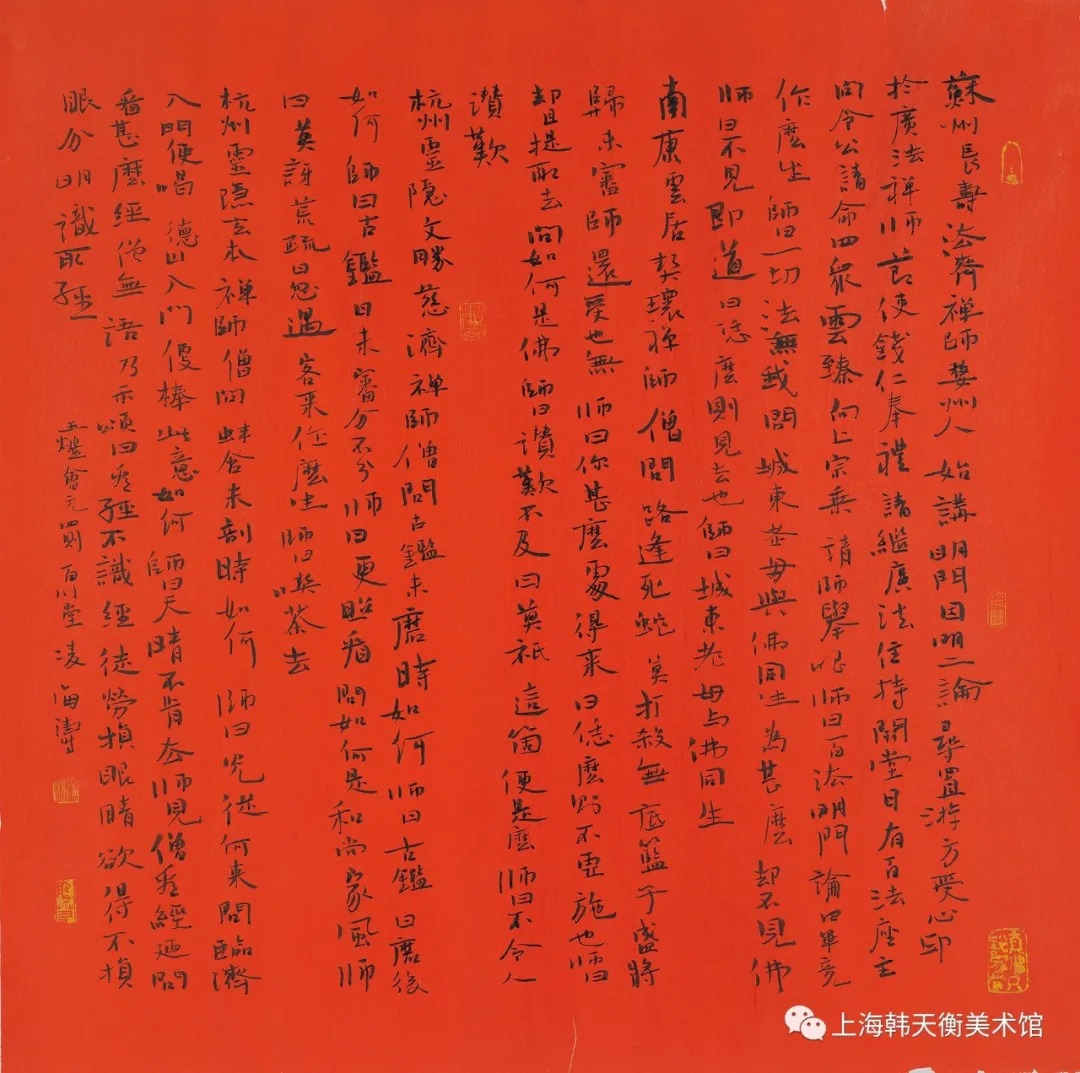 蘇州長壽法齊禪師婺州人始講明門因明二論尋置游方受心印
於廣法禪師節使錢仁奉禮請繼廣法住持開堂日有百法座主
問令公請命四眾雲臻向上宗乘請師舉唱師曰百法明門論曰畢竟
作麼生師曰一切法無我問城東老母與佛同生為甚麼却不見佛
師曰不見即道曰恁麼則見去也師曰城東老母与佛同生
南康雲居契瓌禪師僧問路逢死蛇莫打殺無底籃子盛將
歸未審師還受也無师曰你甚麼處得来曰恁麼則不虛施也师曰
却且提取去問如何是佛師曰讚歎不及曰莫祇這箇便是麼师曰不令人
讚歎
杭州靈隐文勝慈濟禪師僧問古鑑未磨時如何师曰古鑑曰磨後
如何師曰古鑑曰未審分不分师曰更照看問如何是和尚家風师
曰莫訝荒疏曰忽遇客来作麼生師曰喫茶去
杭州靈隐玄本禪師僧問蚌含未剖時如何师曰光從何来問臨濟
入門便喝德山入門便棒此意如何師曰天晴不肯去师見僧看經廼問
看甚麼經僧無語乃示頌曰看經不識經徒勞損眼睛欲得不損
眼分明識取經
五燈會元四則百川堂凌海濤
上海韩天衡美术馆